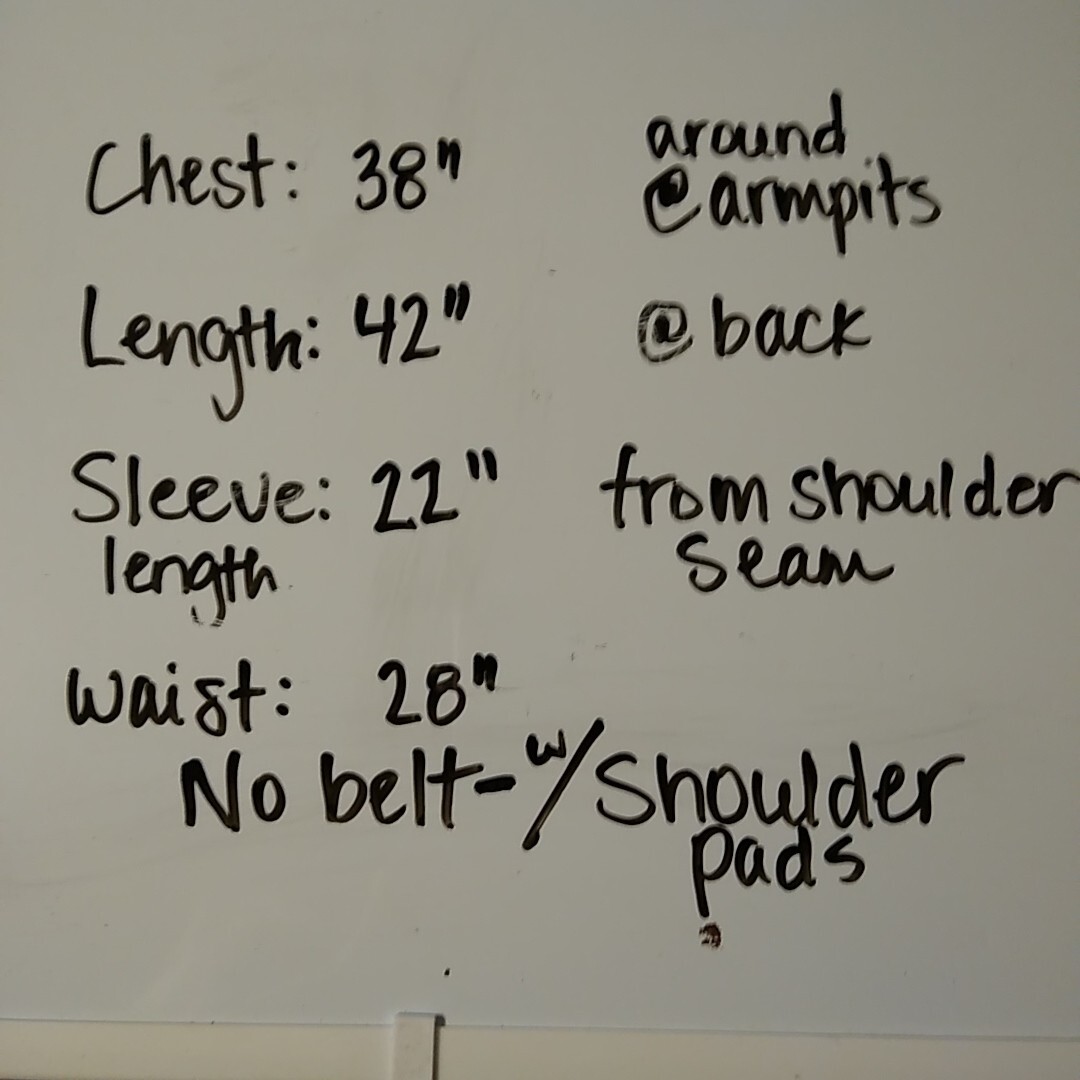 Chest: 38" around @armpits
Length: 42" @ back
Sleeve: 22" from shoulder
length seam
waist: 28"
No belt- w/ Shoulder
pads